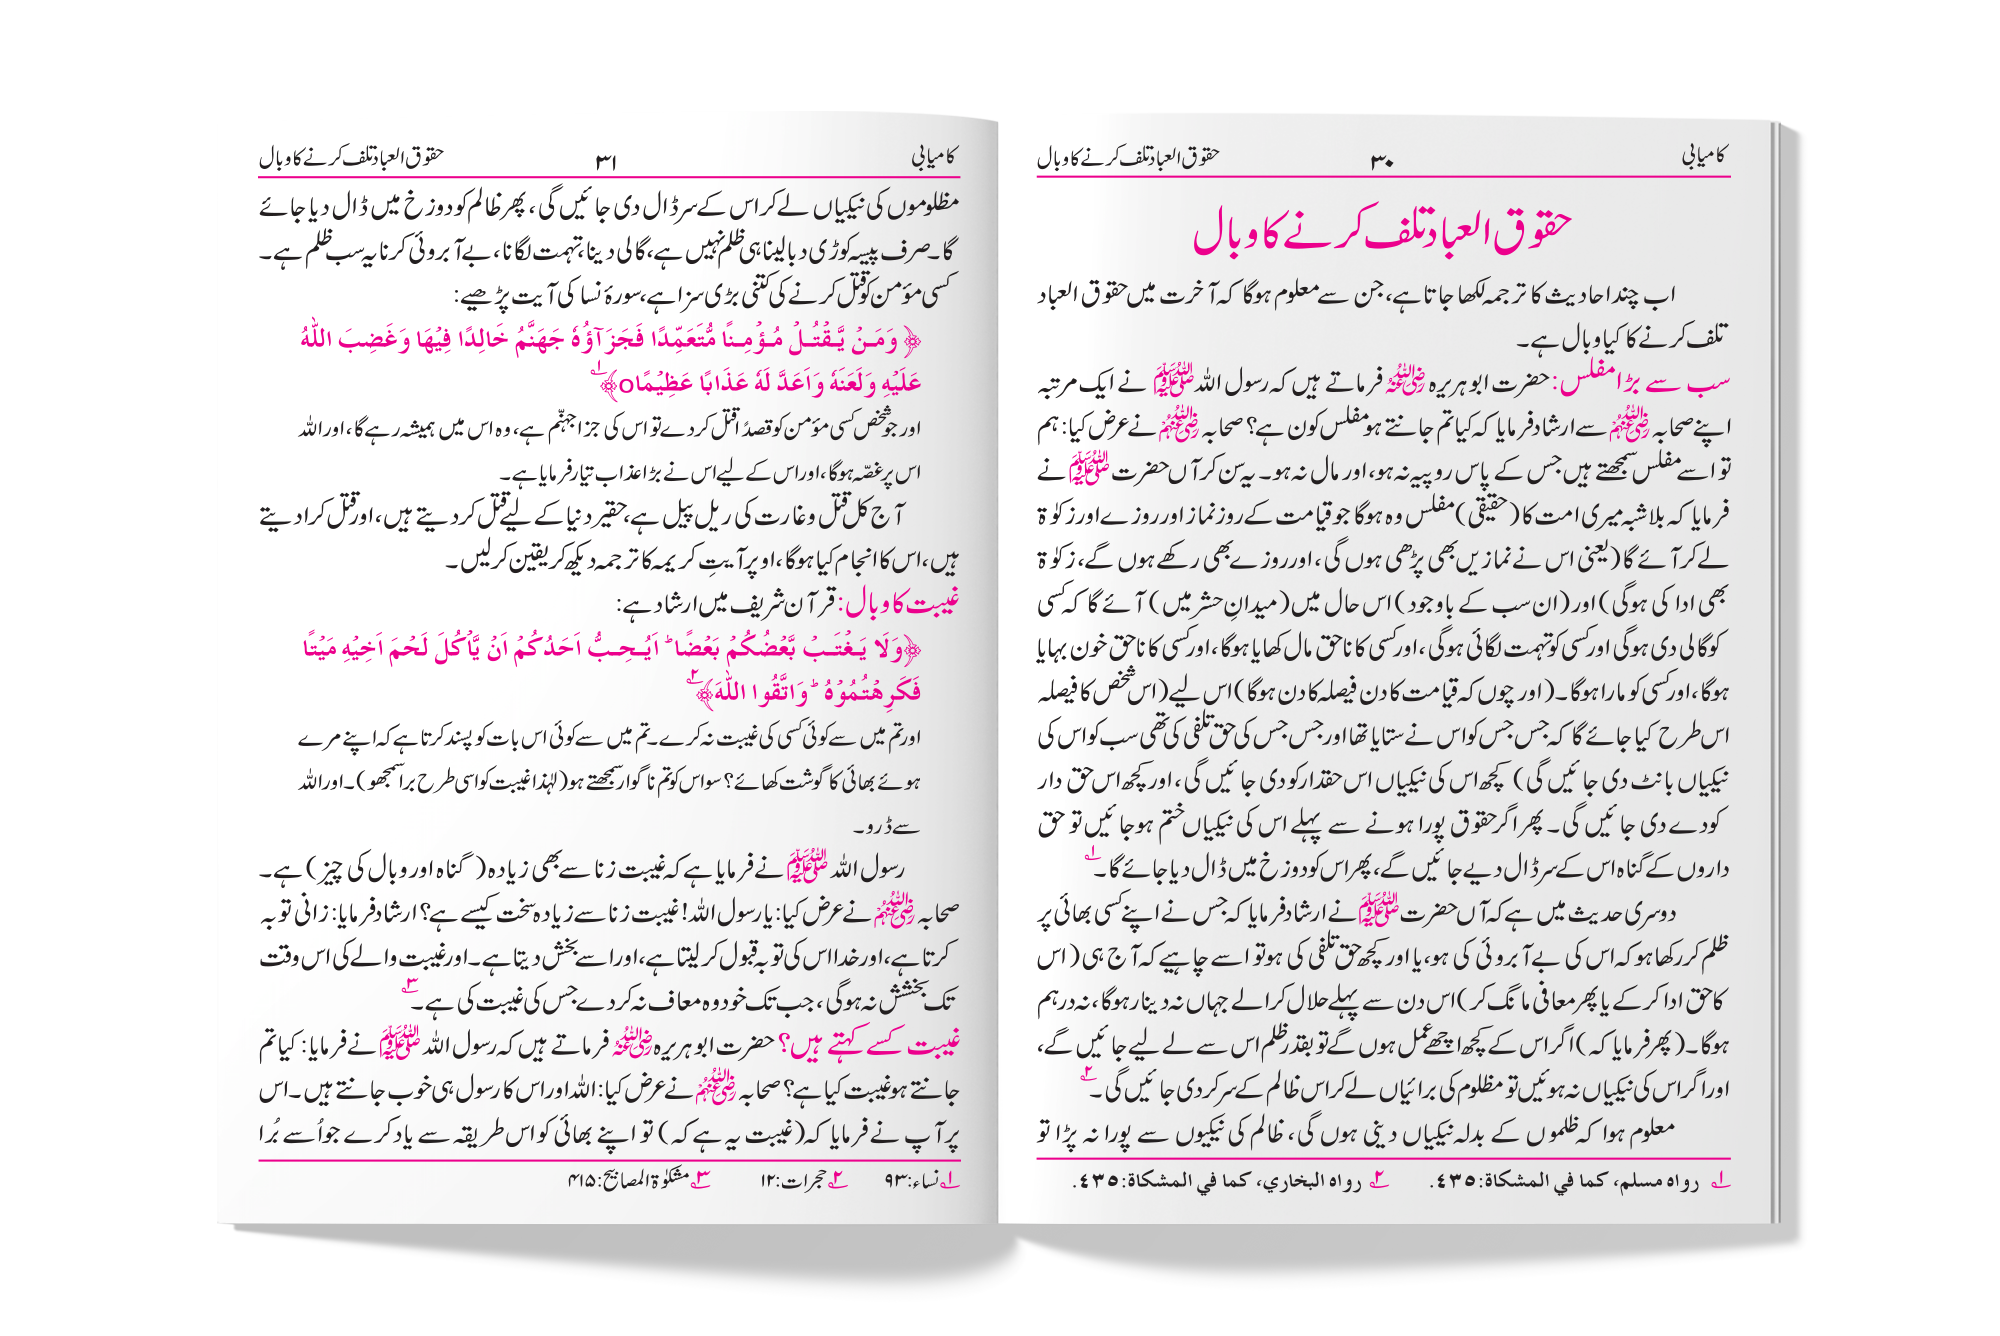 کامیابی ۳۰ حقوق العباد تلف کرنے کا وبال
حقوق العباد تلف کرنے کا وبال
اب چند احادیث کا ترجمہ لکھا جاتا ہے، جن سے معلوم ہوگا کہ آخرت میں حقوق العباد
تلف کرنے کا کیا وبال ہے۔
سب سے بڑا مفلس: حضرت ابو ہریرہ رضی اللہ عنہ فرماتے ہیں کہ رسول اللہ ﷺ نے ایک مرتبہ
اپنے صحابہ رضی اللہ عنہم سے ارشاد فرمایا کہ کیا تم جانتے ہو مفلس کون ہے؟ صحابہ رضی اللہ عنہم نے عرض کیا: ہم
تو اسے مفلس سمجھتے ہیں جس کے پاس روپیہ نہ ہو، اور مال نہ ہو۔ یہ سن کر آں حضرت ﷺ نے
فرمایا کہ بلاشبہ میری امت کا (حقیقی) مفلس وہ ہوگا جو قیامت کے روز نماز اور روزے اور زکوٰۃ
لے کر آئے گا (یعنی اس نے نمازیں بھی پڑھی ہوں گی، اور روزے بھی رکھے ہوں گے، زکوٰۃ
بھی ادا کی ہوگی) اور (ان سب کے باوجود) اس حال میں (میدانِ حشر میں) آئے گا کہ کسی
کو گالی دی ہوگی اور کسی کو تہمت لگائی ہوگی، اور کسی کا ناحق مال کھایا ہوگا، اور کسی کا ناحق خون بہایا
ہوگا، اور کسی کو مارا ہوگا۔ (اور چوں کہ قیامت کا دن فیصلہ کا دن ہوگا) اس لیے (اس شخص کا فیصلہ
اس طرح کیا جائے گا کہ جس جس کو اس نے ستایا تھا اور جس جس کی حق تلفی کی تھی سب کو اس کی
نیکیاں بانٹ دی جائیں گی) کچھ اس کی نیکیاں اس حقدار کو دی جائیں گی، اور کچھ اس حق دار
کو دے دی جائیں گی۔ پھر اگر حقوق پورا ہونے سے پہلے اس کی نیکیاں ختم ہوجائیں تو حق
داروں کے گناہ اس کے سر ڈال دیے جائیں گے، پھر اس کو دوزخ میں ڈال دیا جائے گا۔ ۱
دوسری حدیث میں ہے کہ آں حضرت ﷺ نے ارشاد فرمایا کہ جس نے اپنے کسی بھائی پر
ظلم کر رکھا ہو کہ اس کی بے آبروئی کی ہو، یا اور کچھ حق تلفی کی ہو تو اسے چاہیے کہ آج ہی (اس
کا حق ادا کرکے یا پھر معافی مانگ کر) اس دن سے پہلے حلال کرالے جہاں نہ دینار ہوگا، نہ درہم
ہوگا۔ (پھر فرمایا کہ) اگر اس کے کچھ اچھے عمل ہوں گے تو بقدر ظلم اس سے لے لیے جائیں گے،
اور اگر اس کی نیکیاں نہ ہوئیں تو مظلوم کی برائیاں لے کر اس ظالم کے سر کر دی جائیں گی۔ ۲
معلوم ہوا کہ ظلموں کے بدلہ نیکیاں دینی ہوں گی، ظالم کی نیکیوں سے پورا نہ پڑا تو
۱ رواه مسلم، كما في المشكاة: ٤٣٥. ۲ رواه البخاري، كما في المشكاة: ٤٣٥.
کامیابی ۳۱ حقوق العباد تلف کرنے کا وبال
مظلوموں کی نیکیاں لے کر اس کے سر ڈال دی جائیں گی، پھر ظالم کو دوزخ میں ڈال دیا جائے
گا۔ صرف پیسہ کوڑی دبا لینا ہی ظلم نہیں ہے، گالی دینا، تہمت لگانا، بے آبروئی کرنا یہ سب ظلم ہے۔
کسی مؤمن کو قتل کرنے کی کتنی بڑی سزا ہے، سورۂ نسا کی آیت پڑھیے:
﴿وَمَنْ يَّقْتُلْ مُؤْمِنًا مُّتَعَمِّدًا فَجَزَآؤُهٗ جَهَنَّمُ خَالِدًا فِيْهَا وَغَضِبَ اللّٰهُ
عَلَيْهِ وَلَعَنَهٗ وَاَعَدَّ لَهٗ عَذَابًا عَظِيْمًاO﴾ ۱
اور جو شخص کسی مؤمن کو قصداً قتل کردے تو اس کی جزا جہنّم ہے، وہ اس میں ہمیشہ رہے گا، اور اللہ
اس پر غصّہ ہوگا، اور اس کے لیے اس نے بڑا عذاب تیار فرمایا ہے۔
آج کل قتل و غارت کی ریل پیل ہے، حقیر دنیا کے لیے قتل کر دیتے ہیں، اور قتل کرا دیتے
ہیں، اس کا انجام کیا ہوگا، اوپر آیتِ کریمہ کا ترجمہ دیکھ کر یقین کرلیں۔
غیبت کا وبال: قرآن شریف میں ارشاد ہے:
﴿وَلَا يَغْتَبْ بَّعْضُكُمْ بَعْضًا ؕ اَيُحِبُّ اَحَدُكُمْ اَنْ يَّاْكُلَ لَحْمَ اَخِيْهِ مَيْتًا
فَكَرِهْتُمُوْهُ ؕ وَاتَّقُوا اللّٰهَ﴾ ۲
اور تم میں سے کوئی کسی کی غیبت نہ کرے۔ تم میں سے کوئی اس بات کو پسند کرتا ہے کہ اپنے مرے
ہوئے بھائی کا گوشت کھائے؟ سو اس کو تم ناگوار سمجھتے ہو (لہٰذا غیبت کو اسی طرح برا سمجھو)۔ اور اللہ
سے ڈرو۔
رسول اللہ ﷺ نے فرمایا ہے کہ غیبت زنا سے بھی زیادہ (گناہ اور وبال کی چیز) ہے۔
صحابہ رضی اللہ عنہم نے عرض کیا: یا رسول اللہ! غیبت زنا سے زیادہ سخت کیسے ہے؟ ارشاد فرمایا: زانی توبہ
کرتا ہے، اور خدا اس کی توبہ قبول کر لیتا ہے، اور اسے بخش دیتا ہے۔ اور غیبت والے کی اس وقت
تک بخشش نہ ہوگی، جب تک خود وہ معاف نہ کردے جس کی غیبت کی ہے۔ ۳
غیبت کسے کہتے ہیں؟ حضرت ابو ہریرہ رضی اللہ عنہ فرماتے ہیں کہ رسول اللہ ﷺ نے فرمایا: کیا تم
جانتے ہو غیبت کیا ہے؟ صحابہ رضی اللہ عنہم نے عرض کیا: اللہ اور اس کا رسول ہی خوب جانتے ہیں۔ اس
پر آپ نے فرمایا کہ (غیبت یہ ہے کہ) تو اپنے بھائی کو اس طریقہ سے یاد کرے جو اُسے بُرا
۱ نساء: ۹۳ ۲ حجرات: ۱۲ ۳ مشکوٰۃ المصابیح: ۴۱۵